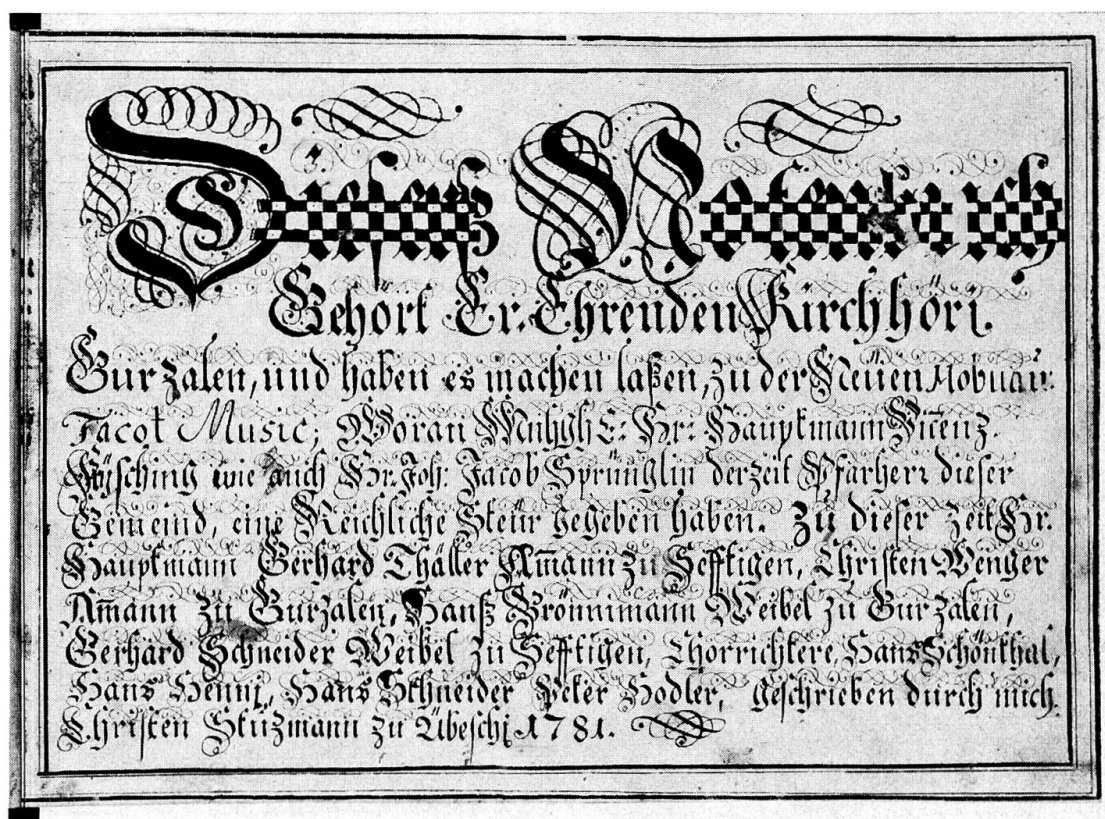 Dieses Notenbuch
Gehört Er. Ehrenden Kirchhöri.
Gurzalen, und haben es machen laßen, zu der Neüen
Jacot Music; Woran Mnhgh E: Hr: Hauptmann Vicenz.
Frisching wie auch Hr. Joh. Jacob Sprünglin derzeit Pfarherr dieser
Gemeind, eine Reichliche Steür gegeben haben. Zu dieser Zeit Hr.
Hauptmann Gerhard Thäller Am̄ann zu Sefftigen, Christen Wenger
Am̄ann zu Gurzalen, Hanß Brönnimann Weibel zu Gurzalen,
Gerhard Schneider Weibel zu Sefftigen, Chorrichtere, Hans Schönthal,
Hans Henni, Hans Schneider Peter Hodler, geschrieben durch mich.
Christen Stuzmann zu Übeschi 1781.